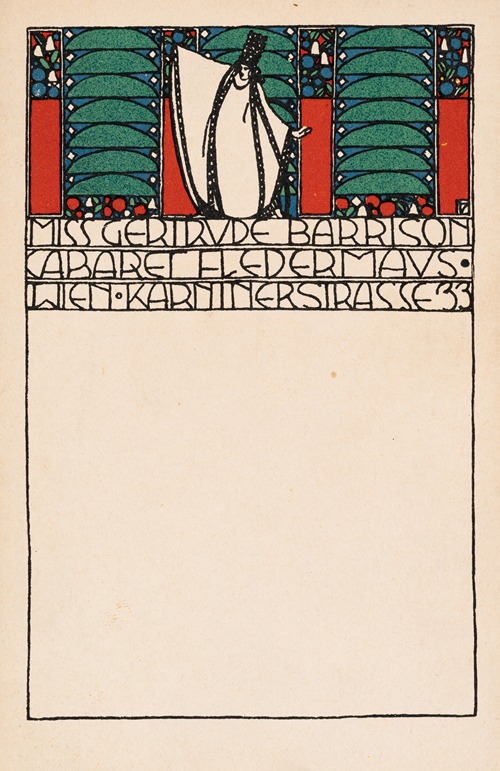 MISS GERTRVDE BARRISON
CABARET FLEDERMAVS •
WIEN • KÄRNTNERSTRASSE 33